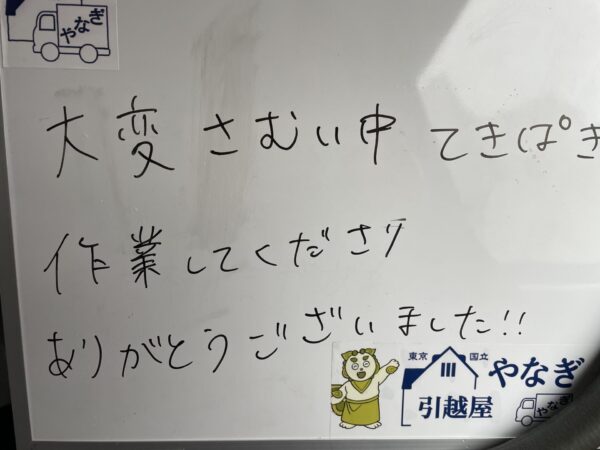 やなぎ
大変さむい中 てきぱき
作業してくださり
ありがとうございました!!
東京 国立
やなぎ
引越屋
やなぎ